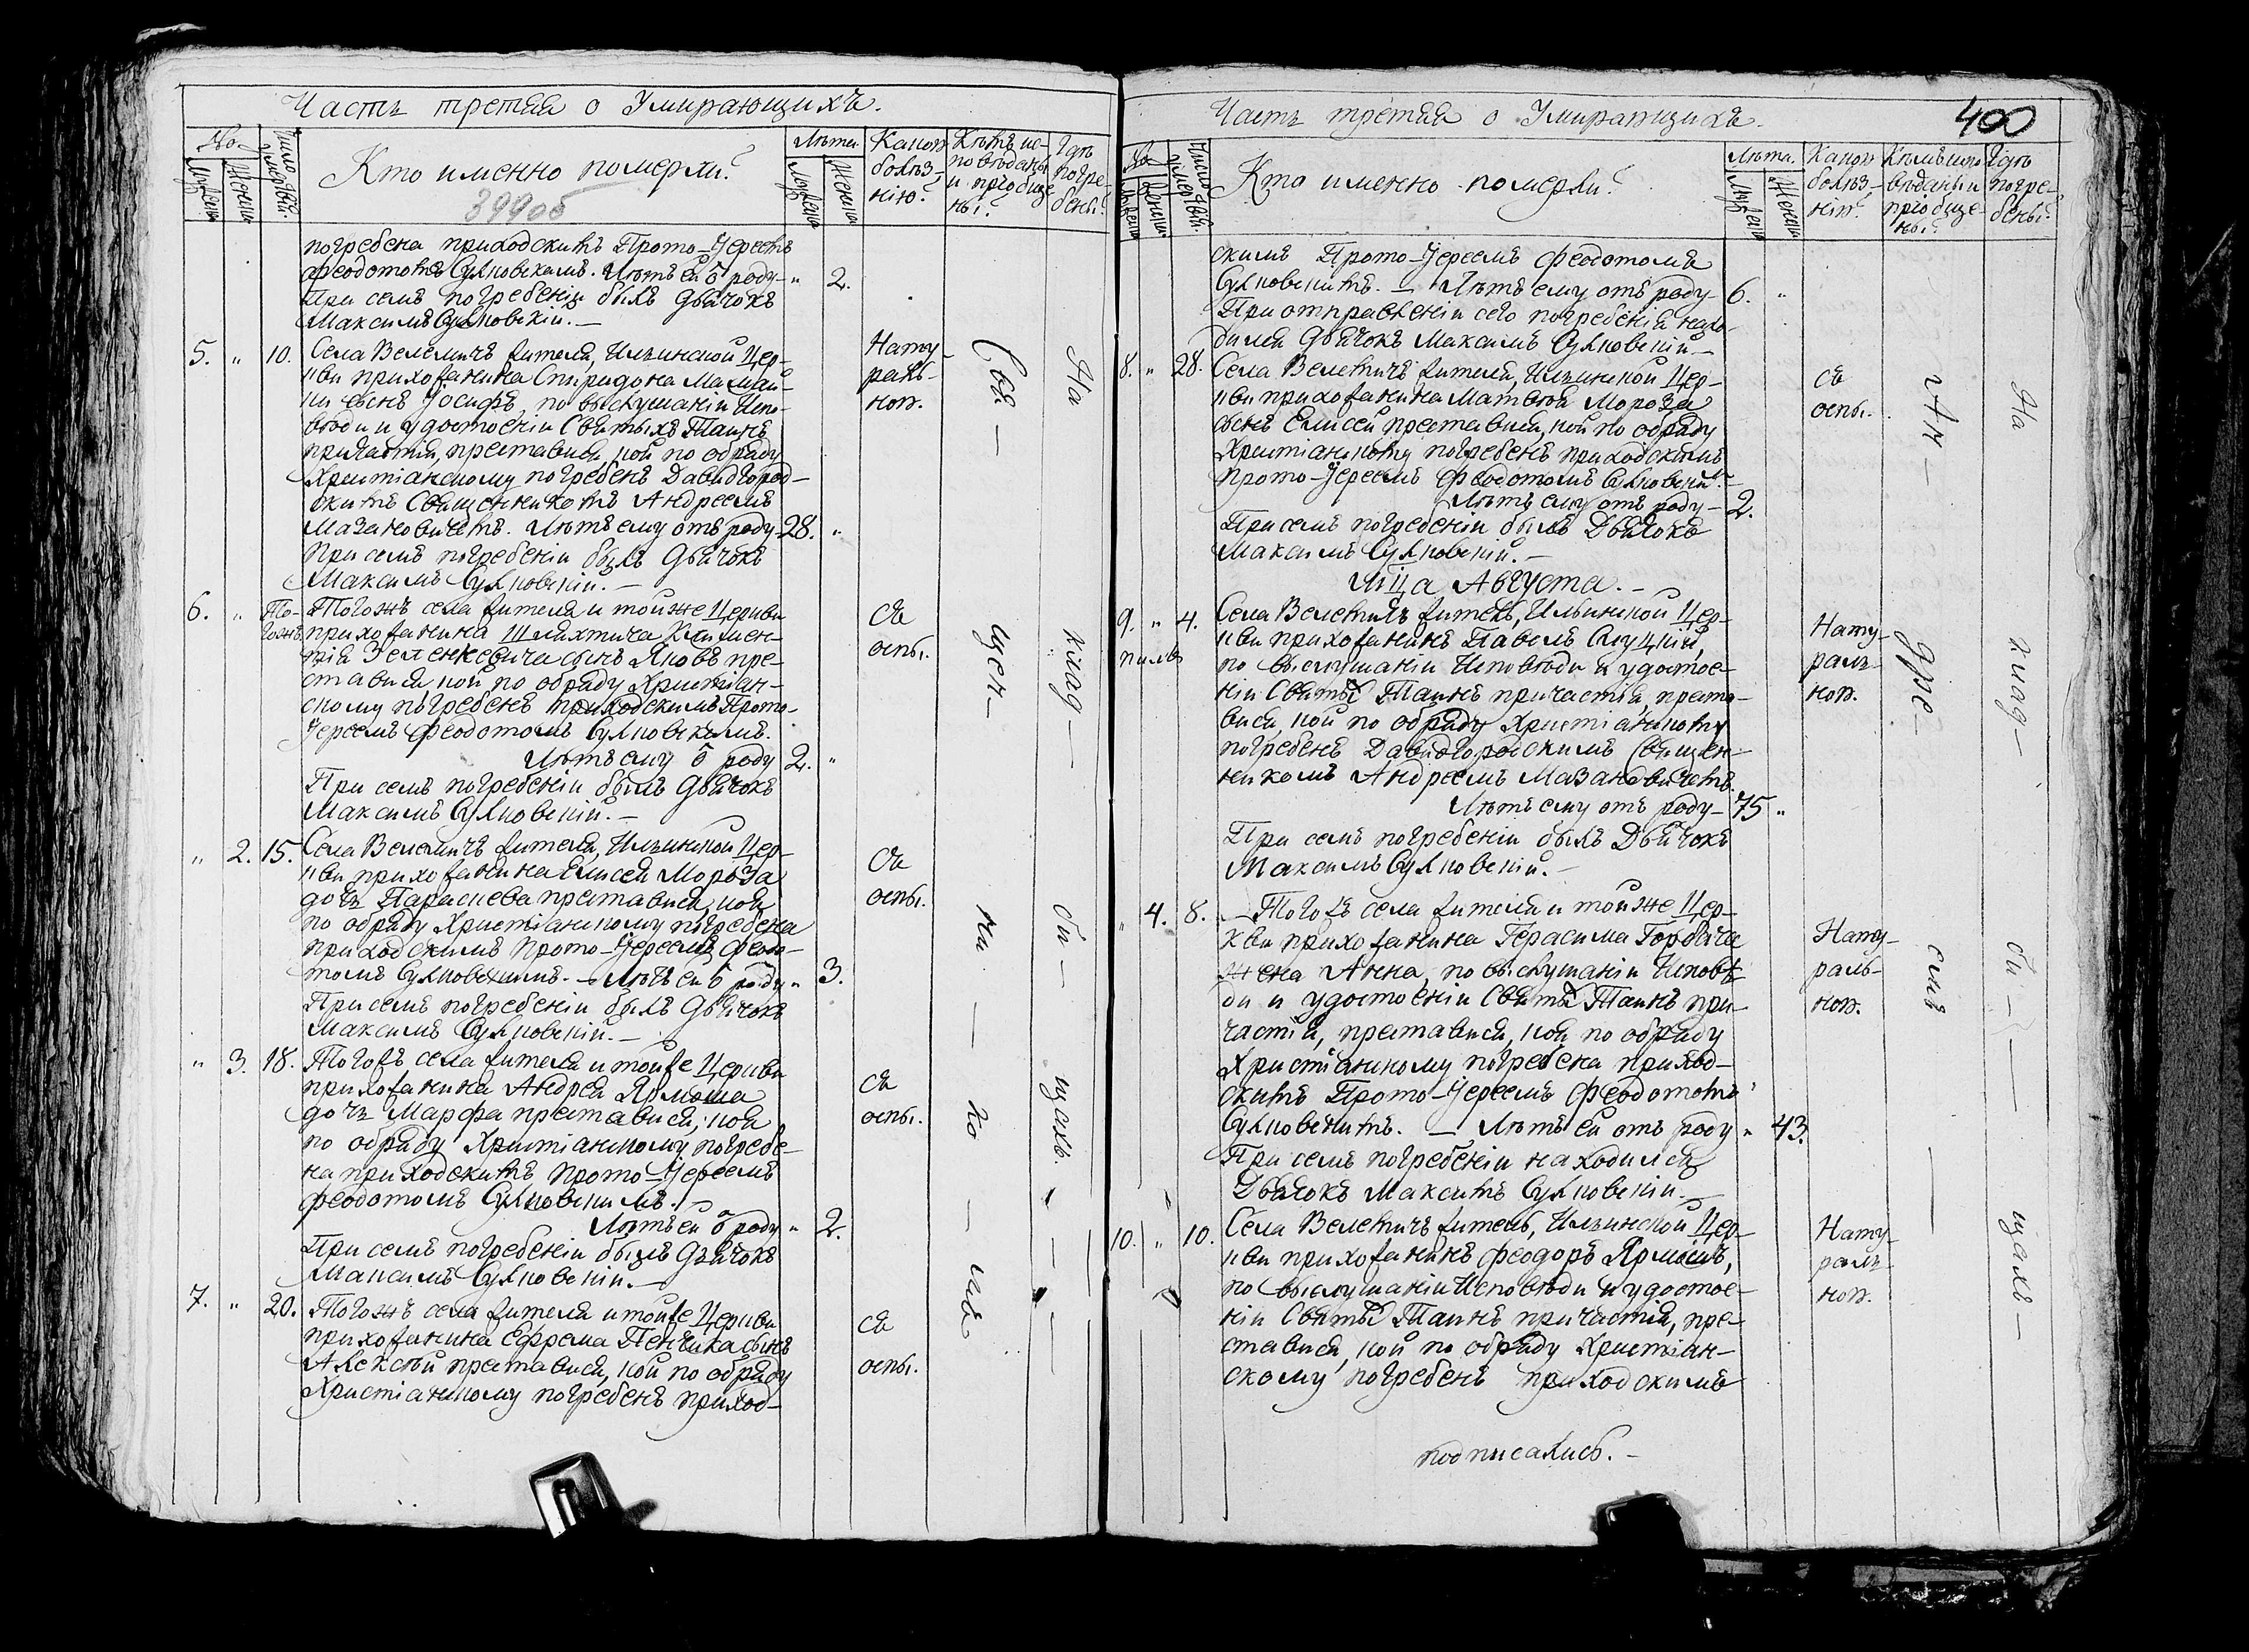 Часть третяя о Умирающихъ.
Но-
Мужеска
Женска
Число умертвій.
Кто именно померли?
399об
Лѣта
Мужеска
Женска
Какою болѣз-
нію?
Кѣмъ ис-
повѣданы
и пріобще-
ны?
Гдѣ
погре-
бены?
погребена приходскимъ Прото-Іереемъ
Феодотомъ Сулковскимъ. Лѣтъ ей ѿ роду- " 2.
При семъ погребеніи былъ Дьячокъ
Максимъ Сулковскій. —
5. " 10. Села Велемичъ жителя, Ильинской Цер-
кви прихожанина Спиридона Малыш-
ки сынъ Іосифъ, по выслушаніи Испо-
вѣди и удостоеніи Святыхъ Таинъ
причастія, преставися, кой по обряду
Христіанскому погребенъ Давидгород-
скимъ Священникомъ Андреемъ
Мазановичемъ. Лѣтъ ему отъ роду- 28. "
При семъ погребеніи былъ Дьячокъ
Максимъ Сулковскій. —
Нату-
раль-
ною.
6. " То-
гожъ
Тогожъ села жителя и тойже Церкви
прихожанина Шляхтича Климен-
тія Зеленкевича сынъ Яковъ пре-
ставися, кой по обряду Христіан-
скому погребенъ приходскимъ Прото-
Іереемъ Феодотомъ Сулковскимъ.
Лѣтъ ему ѿ роду 2. "
При семъ погребеніи былъ Дьячокъ
Максимъ Сулковскій. —
Съ
оспы.
" 2. 15. Села Велемичъ жителя, Ильинской Цер-
кви прихожанина Елисея Мороза
дочь Параскева преставися, коя
по обряду Христіанскому погребена
приходскимъ Прото-Іереемъ Феодо-
томъ Сулковскимъ. — Лѣтъ ей ѿ роду " 3.
При семъ погребеніи былъ Дьячокъ
Максимъ Сулковскій. —
Съ
оспы.
" 3. 18. Тогожъ села жителя и тойже Церкви
прихожанина Андрея Ярмоша
дочь Марфа преставися, коя
по обряду Христіанскому погребе-
на приходскимъ Прото-Іереемъ
Феодотомъ Сулковскимъ. —
Лѣтъ ей ѿ роду " 2.
При семъ погребеніи былъ Дьячокъ
Максимъ Сулковскій. —
Съ
оспы.
7. " 20. Тогожъ села жителя и тойже Церкви
прихожанина Ефрема Пенчика сынъ
Алексѣй преставися, кой по обряду
Христіанскому погребенъ приход-
Съ
оспы.
Свя — щен — ни — ко — мъ
На клад — би — щахъ.
Часть третяя о Умирающихъ.
400
Но-
Мужеска
Женска
Число умертвій.
Кто именно померли?
Лѣта.
Мужеска
Женска
Какою
болѣз-
нію?
Кѣмъ испо-
вѣданы и
пріобще-
ны?
Гдѣ
погре-
бены?
скимъ Прото-Іереемъ Феодотомъ
Сулковскимъ. — Лѣтъ ему отъ роду- 6. "
При отправленіи сего погребенія нахо-
дился Дьячокъ Максимъ Сулковскій. —
8. " 28. Села Велемичъ жителя, Ильинской Цер-
кви прихожанина Матвѣя Мороза
сынъ Елисей преставися, кой по обряду
Христіанскому погребенъ приходскимъ
Прото-Іереемъ Феодотомъ Сулковскимъ.
Лѣтъ ему отъ роду- 2.
При семъ погребеніи былъ Дьячокъ
Максимъ Сулковскій. —
Съ
оспы.
Мца Августа. —
9. " 4. Села Велемичъ житель, Ильинской Цер-
кви прихожанинъ Павелъ Слуцкій,
по выслушаніи Исповѣди и удостое-
ніи Святыхъ Таинъ причастія, преста-
вися, кой по обряду Христіанскому
погребенъ Давидгородскимъ Священ-
никомъ Андреемъ Мазановичемъ.
Лѣтъ ему отъ роду- 75 "
При семъ погребеніи былъ Дьячокъ
Максимъ Сулковскій. —
Нату-
раль-
ною.
" 4. 8. Тогожъ села жителя и тойже Цер-
кви прихожанина Герасима Горбача
жена Анна, по выслушаніи Исповѣ-
ди и удостоеніи Святыхъ Таинъ при-
частія, преставися, коя по обряду
Христіанскому погребена приход-
скимъ Прото-Іереемъ Феодотомъ
Сулковскимъ. — Лѣтъ ей отъ роду " 43.
При семъ погребеніи находился
Дьячокъ Максимъ Сулковскій. —
Нату-
раль-
ною.
10. " 10. Села Велемичъ житель, Ильинской Цер-
кви прихожанинъ Феодоръ Ярмошъ,
по выслушаніи Исповѣди и удостое-
ніи Святыхъ Таинъ причастія, пре-
ставися, кой по обряду Христіан-
скому погребенъ приходскимъ
Нату-
раль-
ною.
Ан — дре — емъ
На клад — би — щахъ —
подписались. —